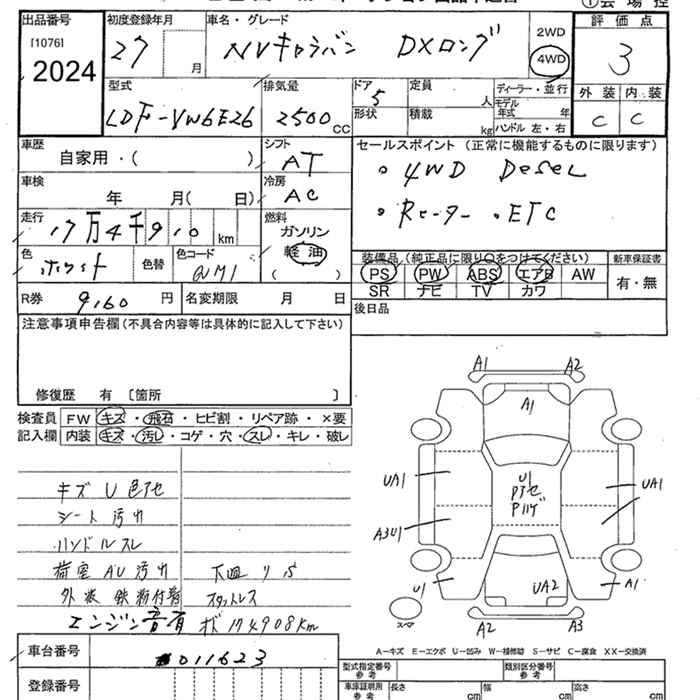 ①会場控
出品番号 初度登録年月 車名・グレード 評価点
[1076]
2024
27 月 NVキャラバン DXロング 2WD 4WD 3
型式 排気量 ドア 定員 ディーラー・並行 外装 内装
LDF-VW6E26 2500cc 5 人 モデル年式 年 C C
形状 積載 kg ハンドル 左・右
車歴 シフト セールスポイント (正常に機能するものに限ります)
自家用・( ) AT 。4WD
車検 冷房
年 月( 日) AC 。ヒーター 。ETC
走行 燃料
17万4千910km ガソリン
軽油
色 色替 色コード ( ) 装備品 (純正品に限り〇をつけてください) 新車保証書
ホワイト QM1 PS PW ABS エアB AW 有・無
SR ナビ TV カワ
R券 9,160円 名変期限 月 日 後日品
注意事項申告欄(不具合内容等は具体的に記入して下さい)
修復歴 有 〔箇所 〕
検査員 FW キズ・飛石・ヒビ割・リペア跡・×要
記入欄 内装 キズ・汚レ・コゲ・穴・スレ・キレ・破レ
A1 A2
A1
UA1 U1 UA1
A3U1
U1 UA2 A1
A2 A3
キズ U 色アセ
シート 汚れ
ハンドルスレ
荷室 AU 汚れ 下廻りサビ
外装 鉄粉付着 スタッドレス
エンジン音有 174908km
A-キズ E-エクボ U-凹み W-補修跡 S-サビ C-腐食 XX-交換済
車台番号 011623
登録番号
型式指定番号 参考 類別区分番号 参考
車庫証明用 参考 長さ cm 幅 cm 高さ cm